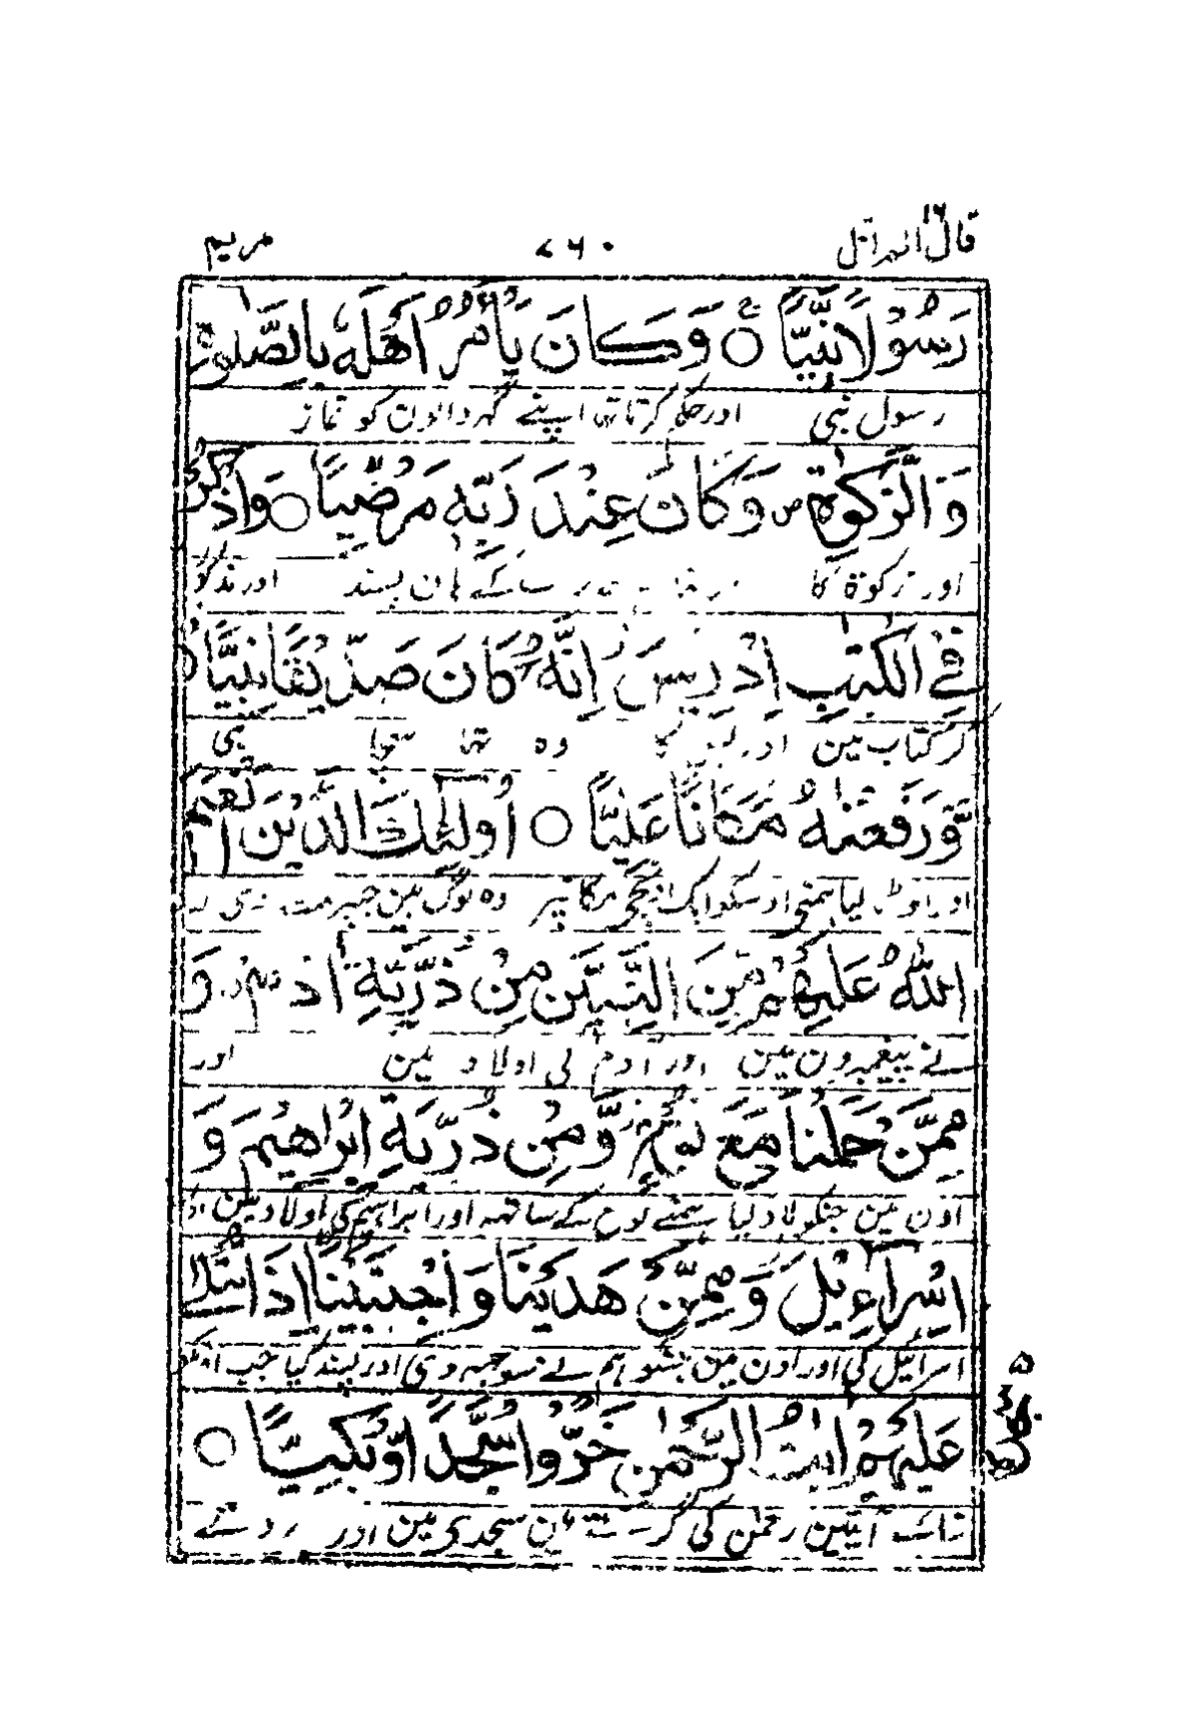 قال الم ١٦ ٧٦٠ مريم
رَسُوْلًا نَّبِيًّا ۚ○ وَكَانَ يَأْمُرُ اَهْلَهٗ بِالصَّلٰوةِ
رسول نبی اور حکم کرتا تھا اپنے گھر والون کو نماز
وَالزَّكٰوةِ ص وَكَانَ عِنْدَ رَبِّهٖ مَرْضِيًّا ○ وَاذْكُرْ
اور زکوة کا کے ہان پسند اور مذکور
فِي الْكِتٰبِ اِدْرِيْسَ ز اِنَّهٗ كَانَ صِدِّيْقًا نَّبِيًّا ○
کر کتاب مین ادریس کا وہ تھا سچا نبی
وَّرَفَعْنٰهُ مَكَانًا عَلِيًّا ○ اُولٰٓئِكَ الَّذِيْنَ اَنْعَمَ
اور اوٹھا لیا ہمنی اوسکو ایک اونچی مکان پر وہ لوگ ہین جنپر نعمت دی
اللّٰهُ عَلَيْهِمْ مِّنَ النَّبِيّٖنَ مِنْ ذُرِّيَّةِ اٰدَمَ وَ
نے پیغمبرون مین اور آدم کی اولاد مین اور
مِمَّنْ حَمَلْنَا مَعَ نُوْحٍ ز وَّمِنْ ذُرِّيَّةِ اِبْرٰهِيْمَ وَ
اون مین جنکو لاد لیا ہمنے نوح کے ساتھہ اور ابراہیم کی اولاد مین اور
اِسْرَآءِيْلَ ز وَمِمَّنْ هَدَيْنَا وَاجْتَبَيْنَا ط اِذَا تُتْلٰى
اسرائیل کی اور اون مین جنکو ہم نے سوجھہ دی اور پسند کیا جب
عَلَيْهِمْ اٰيٰتُ الرَّحْمٰنِ خَرُّوْا سُجَّدًا وَّبُكِيًّا ○
آیتین رحمٰن کی گرتے ہین سجدی مین اور روتے